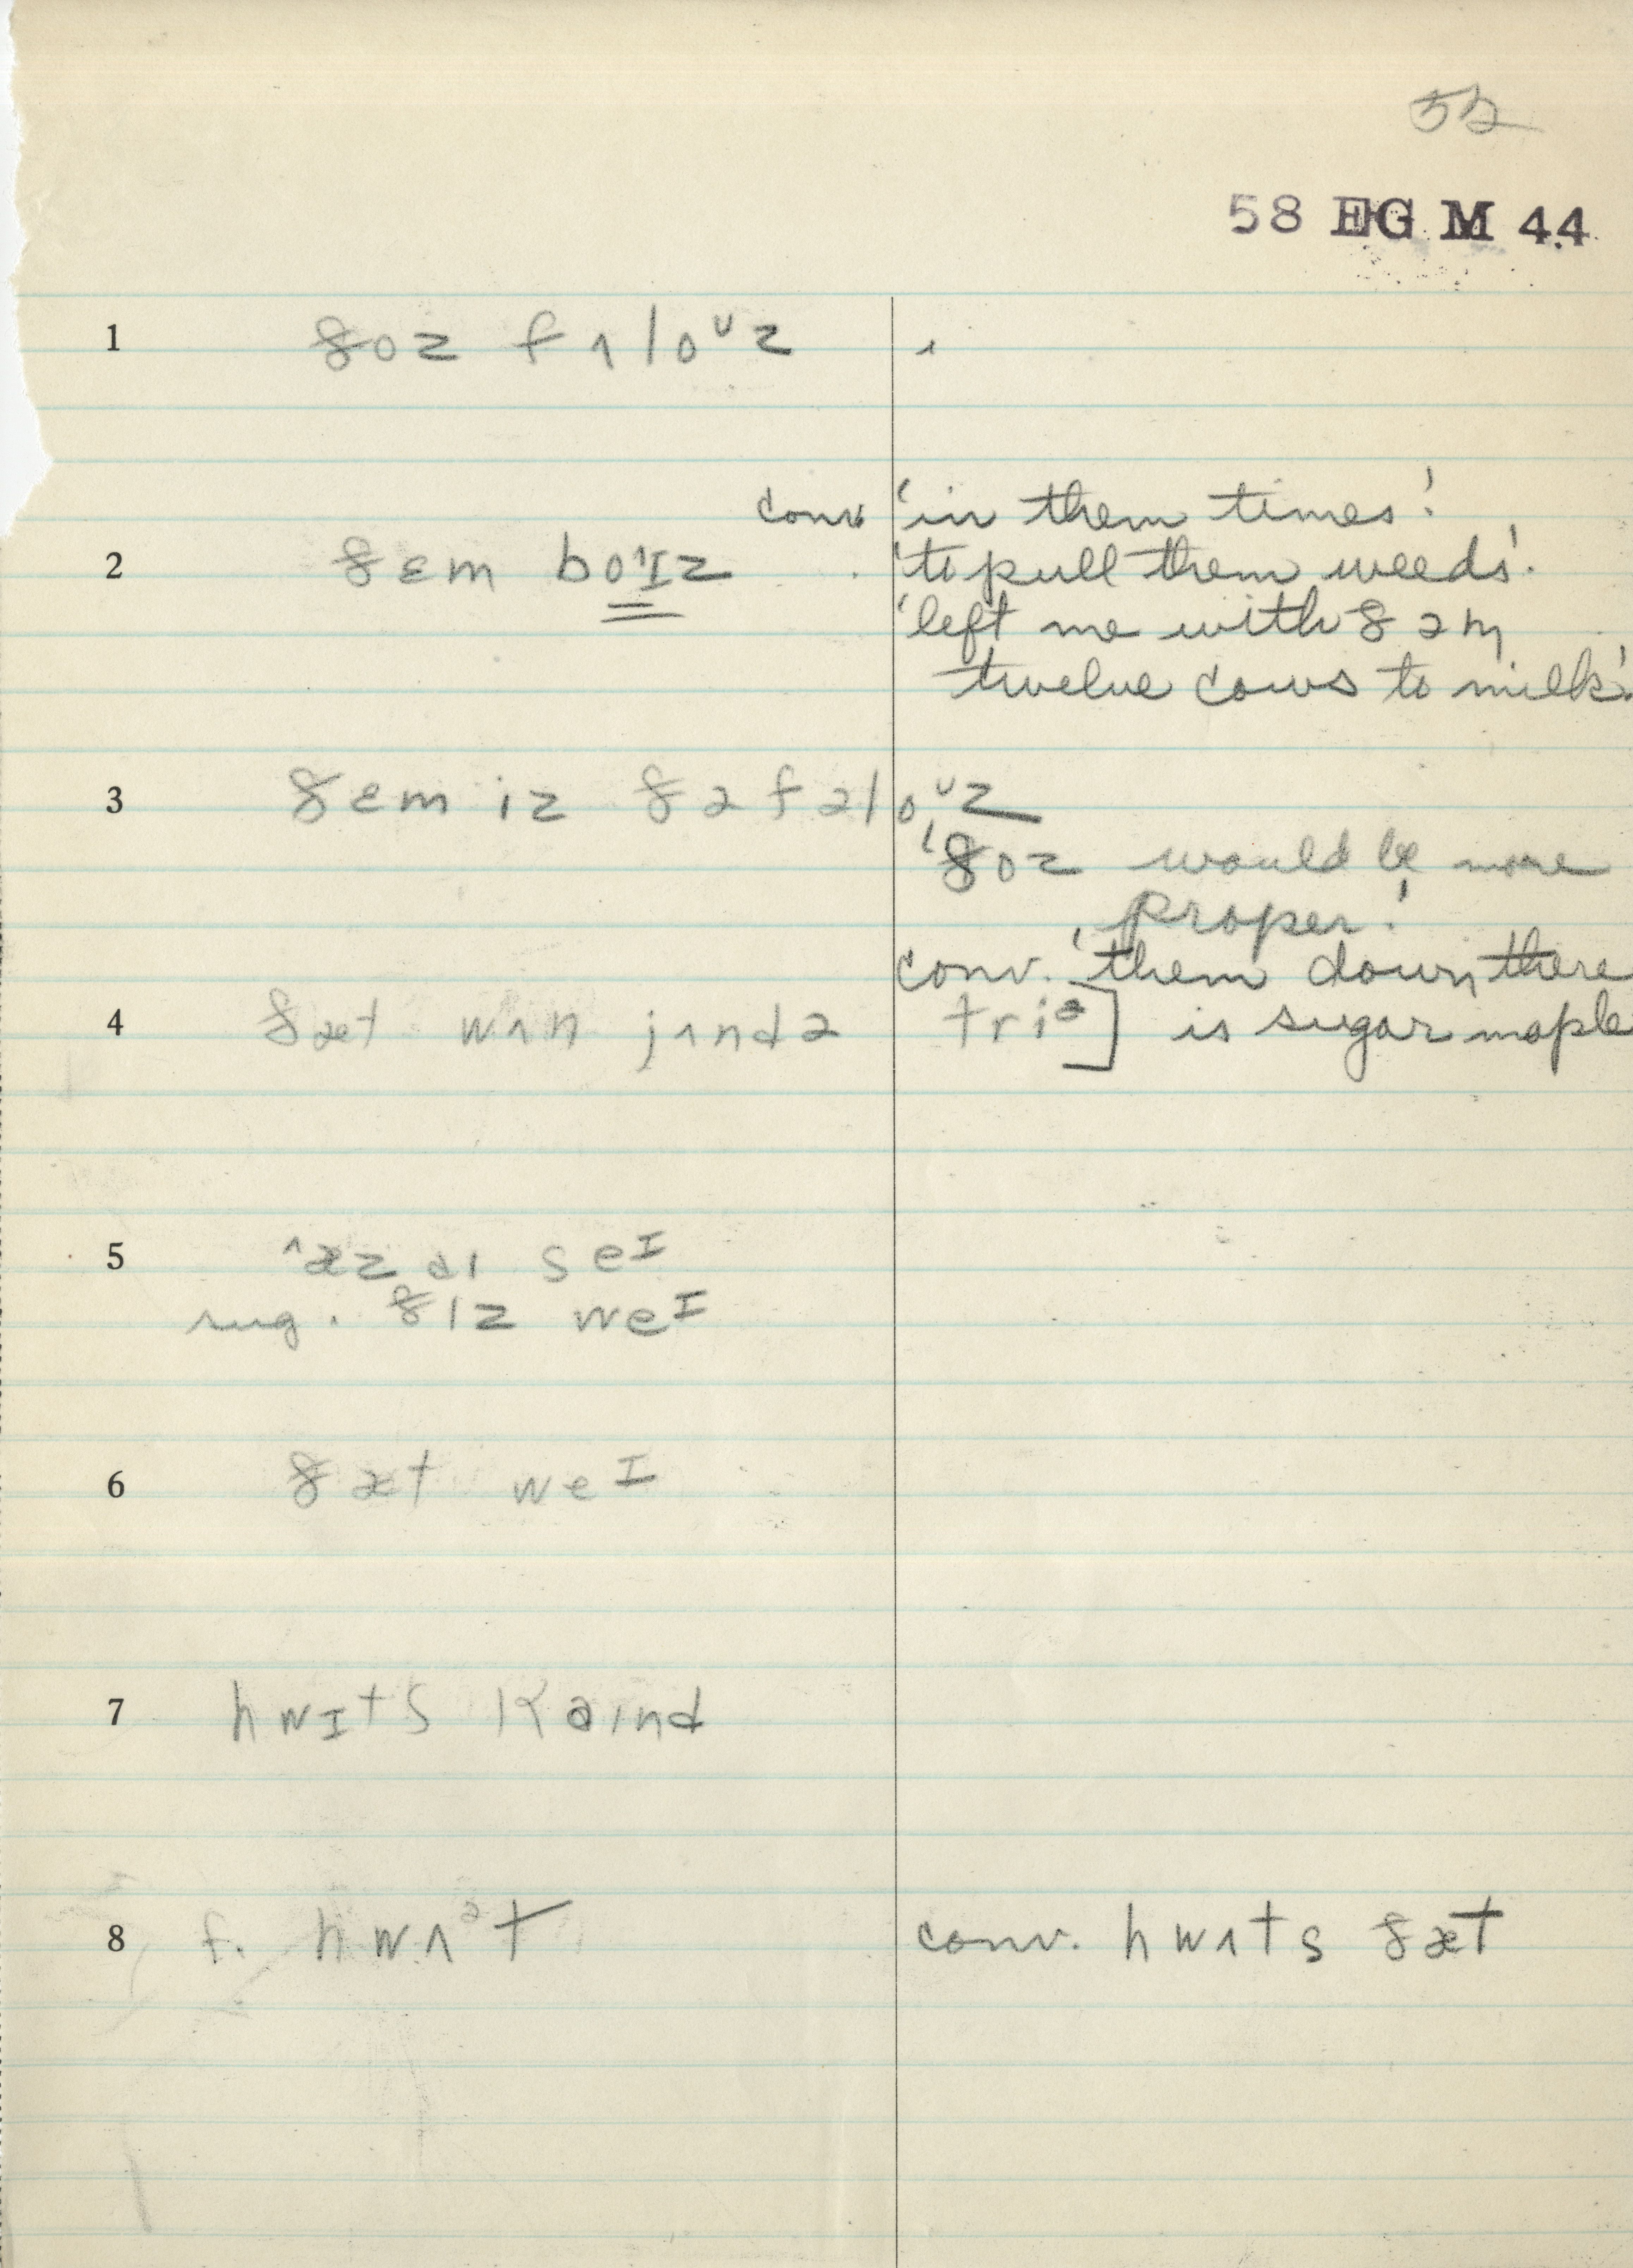 52
58 EG M 44
1 ðoz fʌloᶷz
conv. 'in them times.'
2 ðɛm bo'ɪz 'to pull them weeds'.
'left me with ðəm
twelve cows to milk.'
3 ðɛm iz ðə fəloᶷz
'ðoz would be more
proper.'
conv. 'them down there
4 ðæt wʌn jʌndə triᵊ] is sugar maple
5 ^æz aɪ seᴵ
sug. ðɪz weᴵ
6 ðæt weᴵ
7 hwɪts kaɪnd
8 f. hwʌᵊt conv. hwʌts ðæt